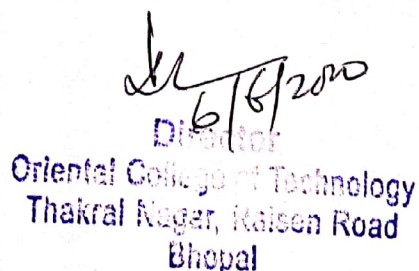 6/6/2020
Director
Oriental College of Technology
Thakral Nagar, Raisen Road
Bhopal